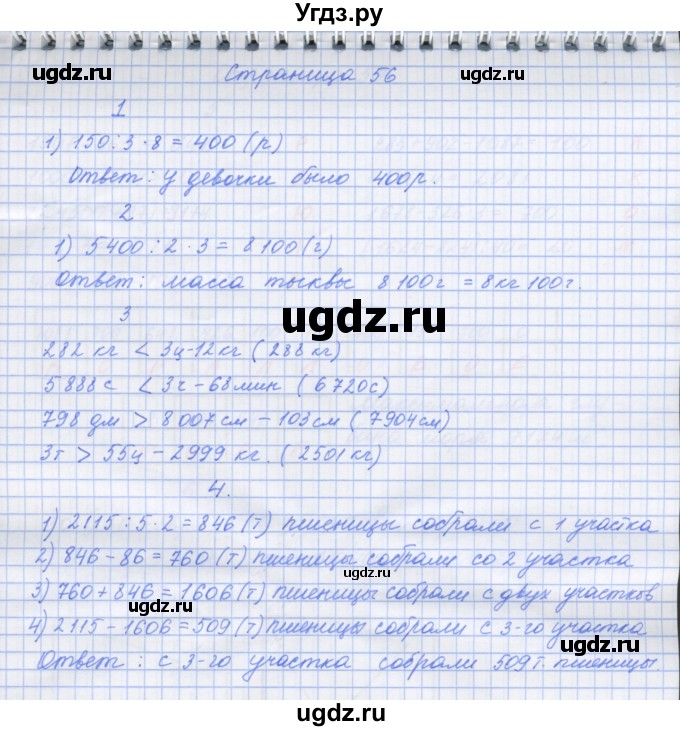 Угдз.ру
ugdz.ru ugdz.ru
Страница 56
1
1) 150:3·8=400(р)
Ответ: у девочки было 400р.
2
1) 5400:2·3=8100(г)
Ответ: масса тыквы 8100г = 8кг 100г.
3
ugdz.ru
282 кг < 3ц-12кг (288кг)
5888с < 3ч-68мин (6720с)
798 дм > 8007см - 103см (7904см)
3т > 55ц - 2999 кг. (2501кг)
4.
1) 2115:5·2=846(т) пшеницы собрали с 1 участка
2) 846-86=760(т) пшеницы собрали со 2 участка
ugdz.ru
3) 760+846=1606(т) пшеницы собрали с двух участков
ugdz.ru
4) 2115-1606=509(т) пшеницы собрали с 3-го участка
Ответ: с 3-го участка собрали 509т. пшеницы.
ugdz.ru
ugdz.ru
ugdz.ru